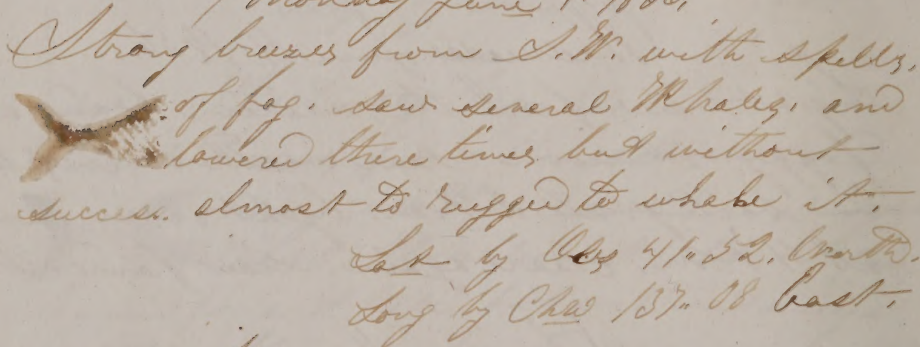 Monday June 1.
Strong breezes from S.W. with spells,
of fog. saw several Whales. and
lowered three times but without
success. almost to rugged to whale it.
Lat by Obs 41.52. North.
Long by Chro 137.08 East.